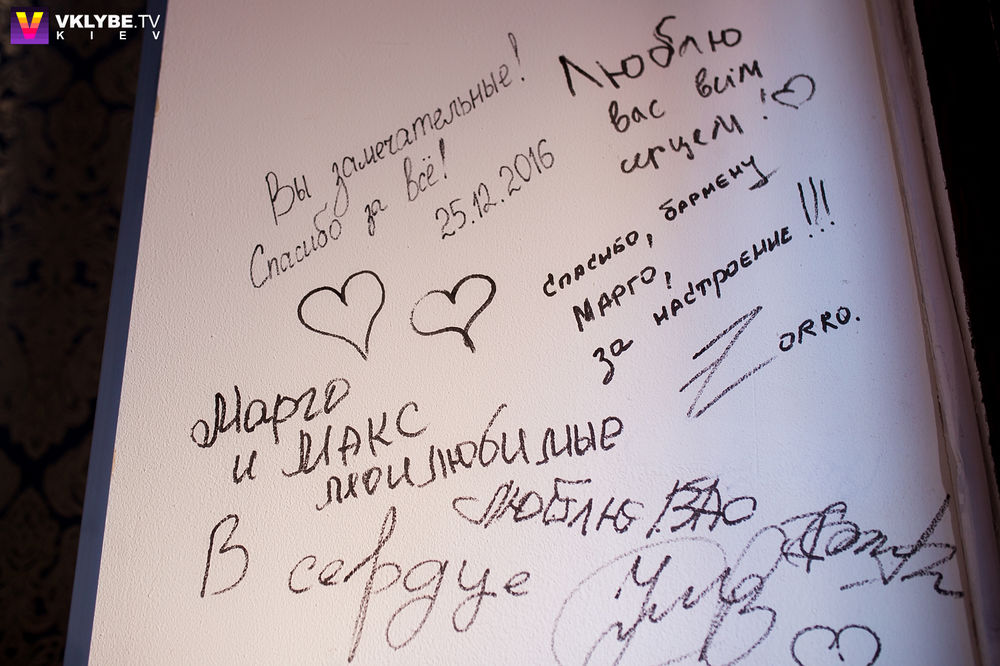 VKLYBE.TV
KIEV
Вы замечательные!
Спасибо за всё!
25.12.2016
Люблю
вас всім
серцем!
СПАСИБО, БАРМЕНУ
МАРГО,
за НАСТРОЕНИЕ!!!
ZORRO.
Марго
и МАКС
мои любимые
люблю ВАС
В сердце